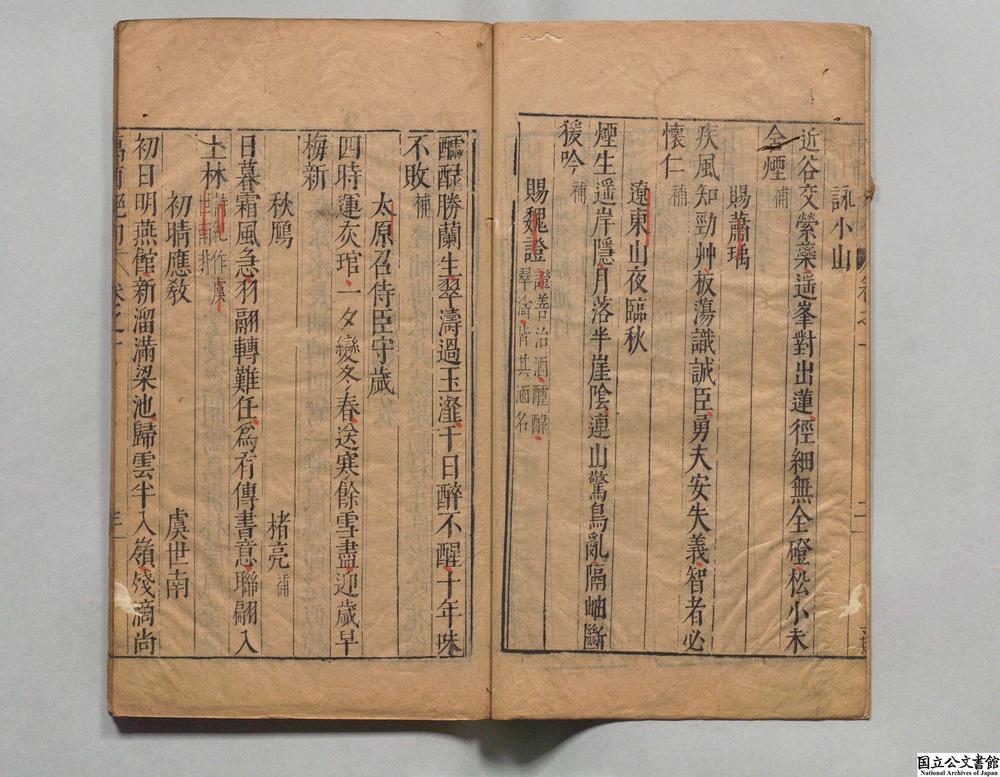 詠小山
近谷交縈蘂遥峯對出蓮徑細無全磴松小未
含煙 補
賜蕭瑀
疾風知勁艸板蕩識誠臣勇夫安失義智者必
懷仁 補
遼東山夜臨秋
煙生遥岸隱月落半崖陰連山驚鳥亂隔岫斷
猨吟 補
賜魏證 證善治酒醽醁
翠濤皆其酒名
醽醁勝蘭生翠濤過玉瀣千日醉不醒十年味
不敗 補
太原召侍臣守歲
四時運灰琯一夕變冬春送寒餘雪盡迎歲早
梅新
秋鴈 褚亮 補
日暮霜風急羽翮轉難任爲有傳書意聯翩入
上林
初晴應敎 虞世南
初日明燕館新溜滿梁池歸雲半入嶺殘滴尚
国立公文書館
National Archives of Japan